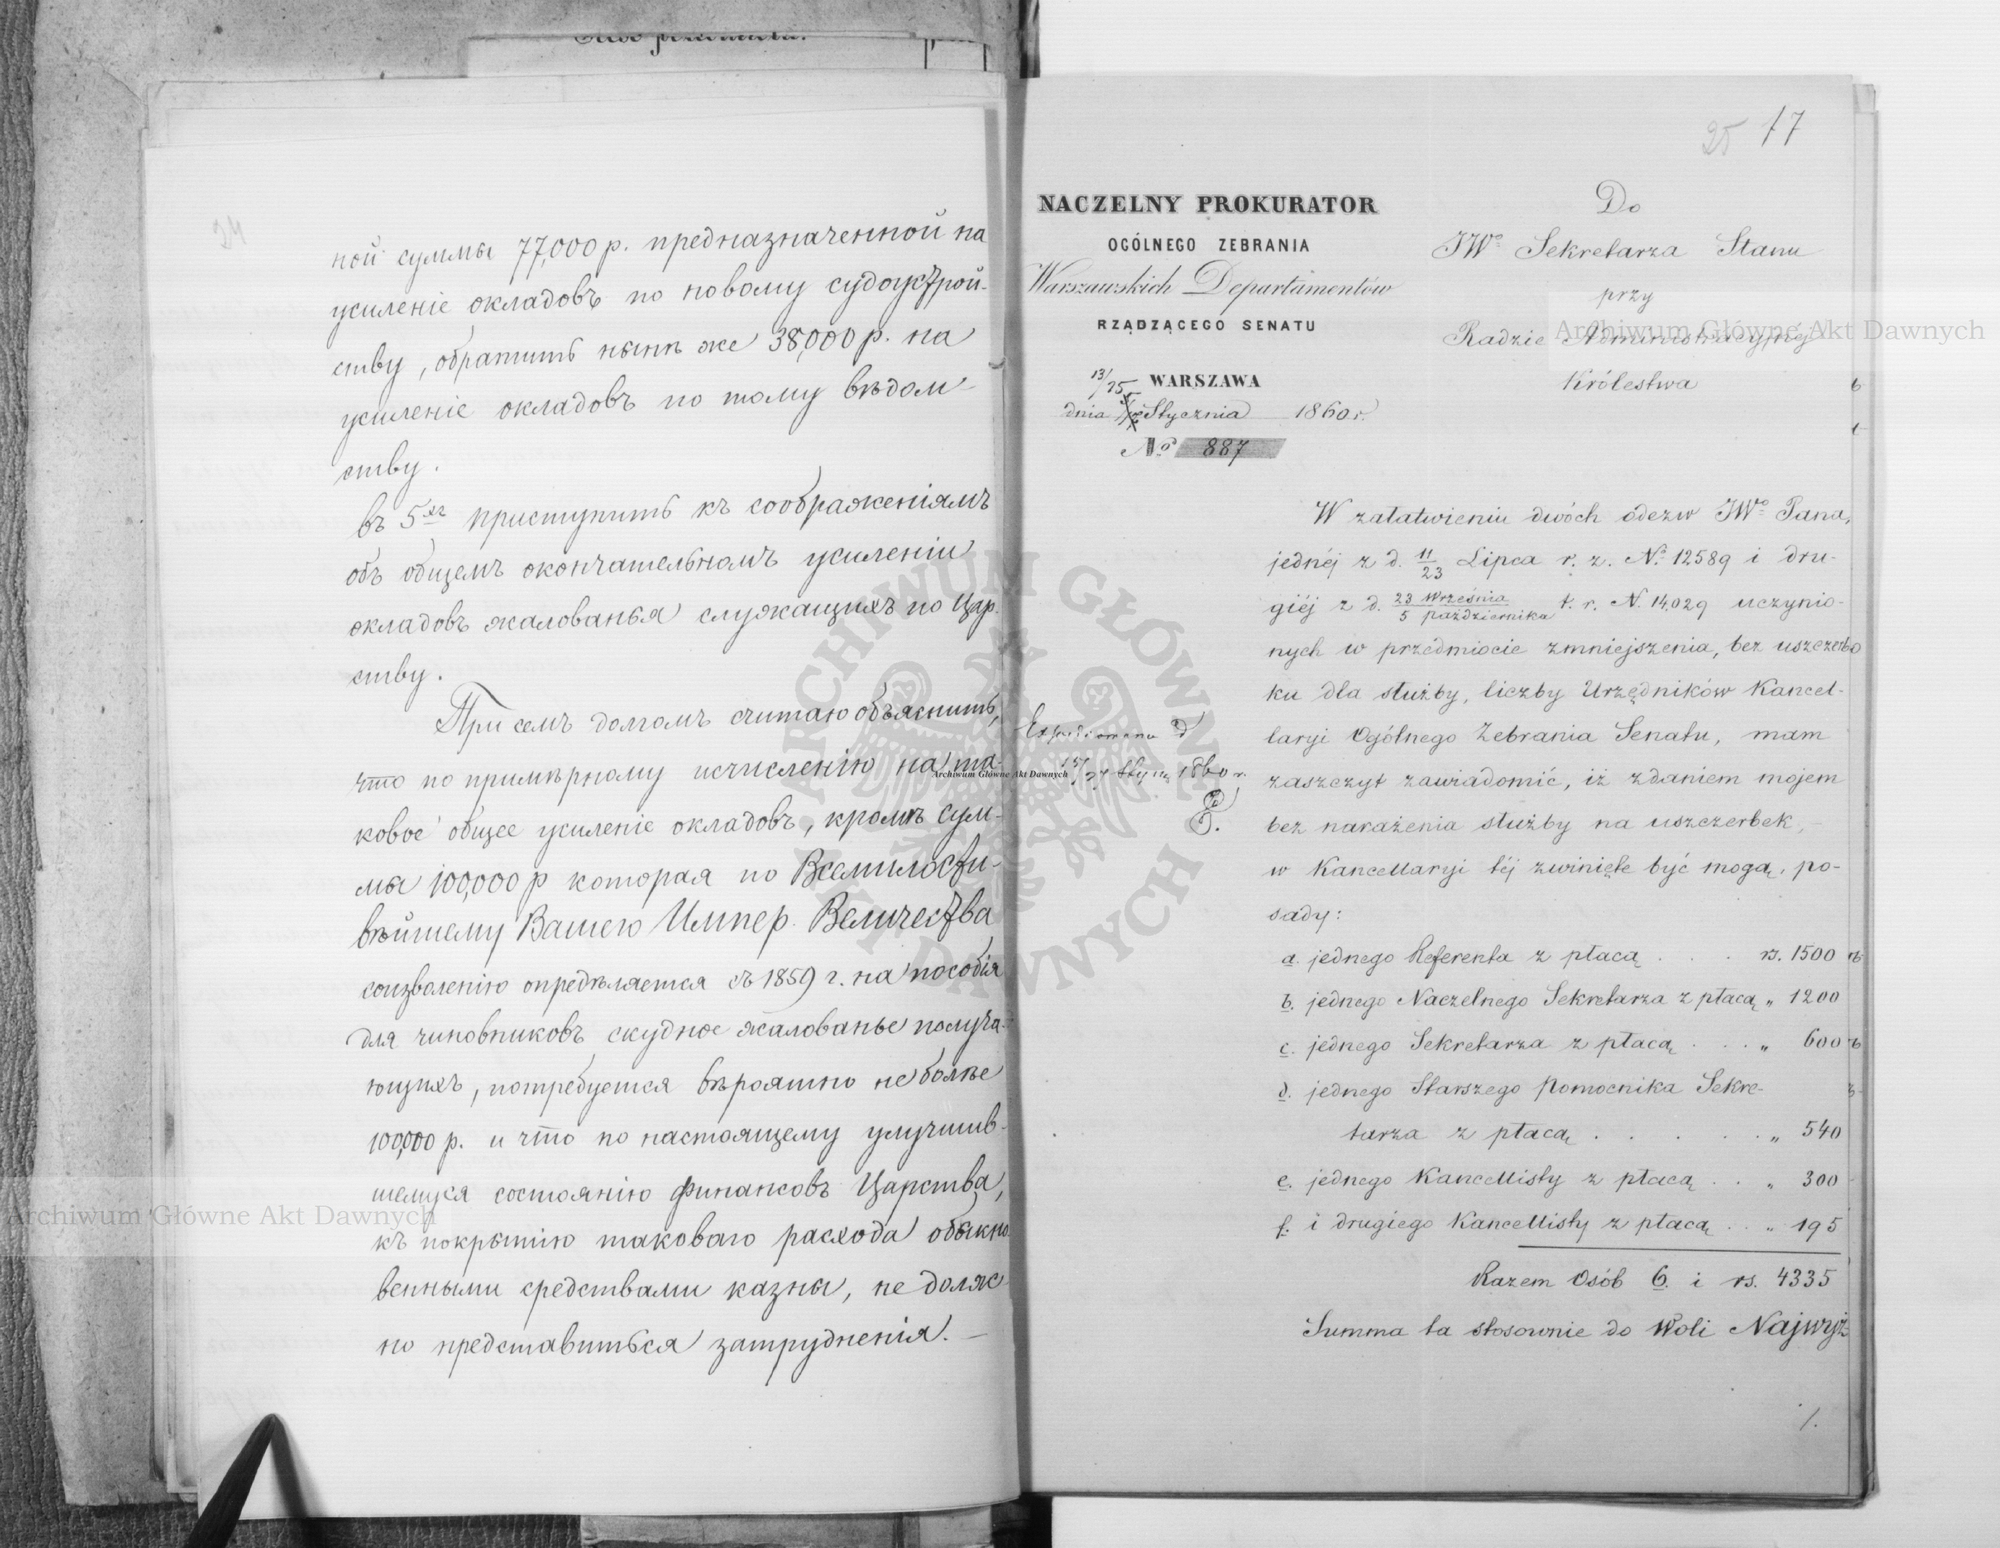 24
ной суммы 77,000 р. предназначенной на
усиленіе окладовъ по новому судоустрой-
ству, обратить нынѣ же 38,000 р. на
усиленіе окладовъ по тому вѣдом-
ству.
въ 5хъ приступить къ соображеніямъ
объ общемъ окончательномъ усиленіи
окладовъ жалованья служащихъ по Цар-
ству.
При семъ долгомъ считаю объяснить,
что по примѣрному исчисленію на та-
ковое общее усиленіе окладовъ, кромѣ сум-
мы 100,000 р которая по Всемилости-
вѣйшему Вашего Импер. Величества
соизволенію опредѣляется съ 1859 г. на пособія
для чиновниковъ скудное жалованье получа-
ющихъ, потребуется вѣроятно не болѣе
100,000 р. и что по настоящему улучшив-
шемуся состоянію финансовъ Царства,
къ покрытію таковаго расхода обыкно
венными средствами казны, не долж-
но представиться затрудненія. —
25 17
NACZELNY PROKURATOR
OGÓLNEGO ZEBRANIA
Warszawskich Departamentów
RZĄDZĄCEGO SENATU
WARSZAWA
dnia 13/25 Stycznia 1860 r.
No 887
Do
JWo Sekretarza Stanu
przy
Radzie Administracyjnéj
Królestwa
W załatwieniu dwóch odezw JWo Pana,
jednéj z d. 11/23 Lipca r. z. No 12589 i dru-
giéj z d. 23 Września/5 Października t. r. N. 14,029 uczynio-
nych w przedmiocie zmniejszenia, bez uszczerb-
ku dla służby, liczby Urzędników Kancel-
laryi Ogólnego Zebrania Senatu, mam
zaszczyt zawiadomić, iż zdaniem mojem
bez narażenia służby na uszczerbek, —
w Kancellaryi téj zwinięte być mogą, po-
sady:
a. jednego Referenta z płacą . . . rs. 1500
b. jednego Naczelnego Sekretarza z płacą „ 1200
c. jednego Sekretarza z płacą . . . „ 600
d. jednego Starszego Pomocnika Sekre-
tarza z płacą . . . . . „ 540
e. jednego Kancellisty z płacą . . „ 300
f. i drugiego Kancellisty z płacą . . „ 195
Razem Osób 6. i rs. 4335
Summa ta stosownie do Woli Najwyż
Expediowano d
15/27 Stycz 1860 r.
Archiwum Główne Akt Dawnych
Archiwum Główne Akt Dawnych
Archiwum Główne Akt Dawnych
ARCHIWUM GŁÓWNE AKT DAWNYCH